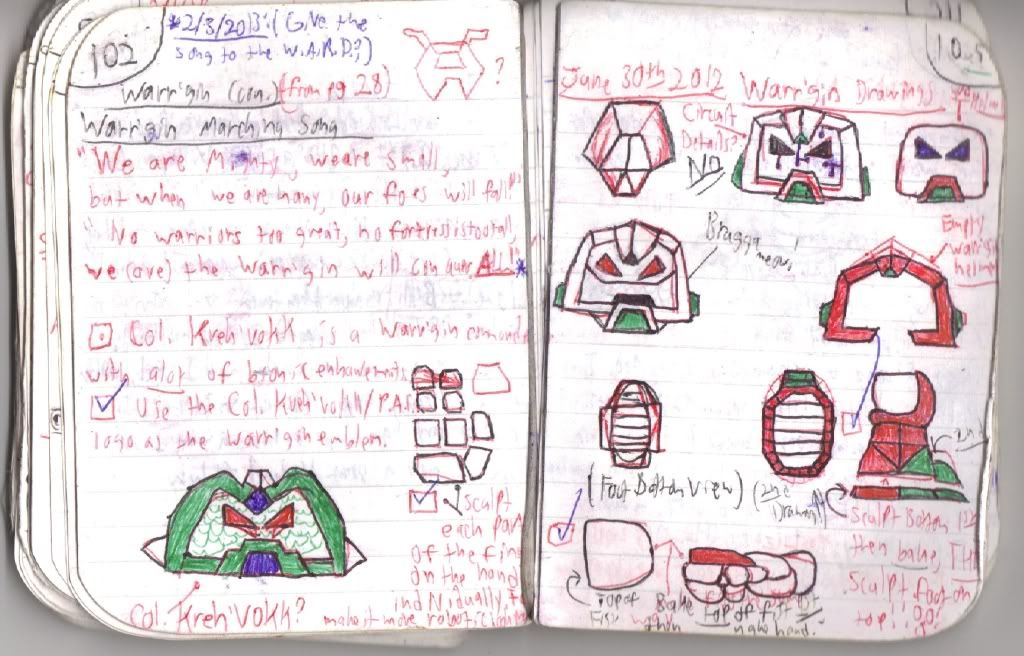 102
*2/3/2013: (Give the
song to the W.A.R.D?)
?
Warrigin (con.) (from pg 28)
Warrigin Marching Song
"We are Mighty, we are small,
but when we are many, our foes will fall"
"No warriors too great, no fortress is too tall,
we (are) the Warrigin will conquer ALL!"*
Col. Kreh'vokk is a Warrigin comande
with alot of bionic enhancements
Use the Col. Kreh'vokk/P.A.S.
logo as the Warrigin emblem.
Sculpt
each part
of the fing
on the hand
individually,
make it more robotic
Col. Kreh'vokk?
June 30th 2012 Warrigin Drawings
Circuit
Details?
NO
Empty
warrigin
helmet
(Foot Botton View)
(2nd
Drawing)
Sculpt Botton 1st
then bake, THEN
Sculpt foot on
top!!
Top of
Bake top of fist 1st
then make hand.